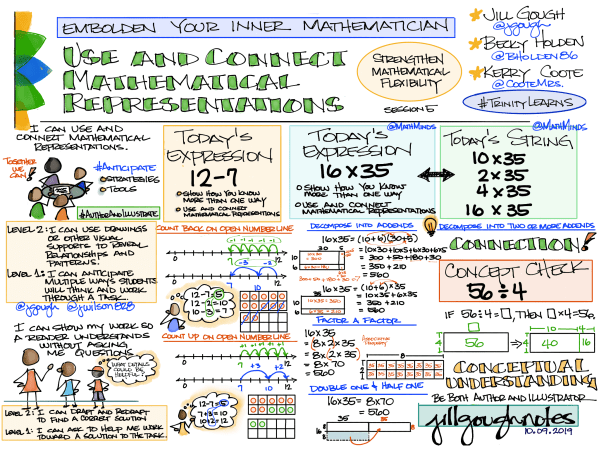 EMBOLDEN YOUR INNER MATHEMATICIAN
USE AND CONNECT
MATHEMATICAL
REPRESENTATIONS
STRENGTHEN
MATHEMATICAL
FLEXIBILITY
SESSION 5
JILL GOUGH
@jgough
BECKY HOLDEN
@BHOLDEN86
KERRY COOTE
@COOTEMRS.
#TRINITYLEARNS
I CAN USE AND
CONNECT MATHEMATICAL
REPRESENTATIONS.
TOGETHER
WE CAN!
#ANTICIPATE
STRATEGIES
TOOLS
#AUTHORANDILLUSTRATE
LEVEL 2: I CAN USE DRAWINGS
OR OTHER VISUAL
SUPPORTS TO REVEAL
RELATIONSHIPS AND
PATTERNS.
LEVEL 1: I CAN ANTICIPATE
MULTIPLE WAYS STUDENTS
WILL THINK AND WORK
THROUGH A TASK.
@jgough @jwilson828
I CAN SHOW MY WORK SO
A READER UNDERSTANDS
WITHOUT ASKING
ME QUESTIONS.
WHAT DETAILS
COULD BE
HELPFUL?
LEVEL 2: I CAN DRAFT AND REDRAFT
TO FIND A CORRECT SOLUTION
LEVEL 1: I CAN ASK TO HELP ME WORK
TOWARD A SOLUTION TO THE TASK.
TODAY'S
EXPRESSION
12-7
SHOW HOW YOU KNOW
MORE THAN ONE WAY
USE AND CONNECT
MATHEMATICAL REPRESENTATIONS
COUNT BACK ON OPEN NUMBER LINE
12-7=5
12-2=10
10-3=7
COUNT UP ON OPEN NUMBER LINE
12-7=5
7+3=10
10+2=12
@MATHMINDS
TODAY'S
EXPRESSION
16×35
SHOW HOW YOU KNOW
MORE THAN ONE WAY
USE AND CONNECT
MATHEMATICAL REPRESENTATIONS
DECOMPOSE INTO ADDENDS
16×35=(10+6)(30+5)
=10×30+10×5+6×30+6×5
=300+50+180+30
=350+210
=560
16×35=(10+6)×35
=10×35+6×35
=350+210
=560
FACTOR A FACTOR
16×35
=8×2×35
=8×2×35
=8×70
=560
ASSOCIATIVE
PROPERTY
DOUBLE ONE & HALF ONE
16×35=8×70
=560
@MATHMINDS
TODAY'S STRING
10×35
2×35
4×35
16×35
DECOMPOSE INTO TWO OR MORE ADDENDS
CONNECTION!
CONCEPT CHECK
56÷4
IF 56÷4=□, THEN □×4=56.
4 □ 56
10 14
4 40 16
CONCEPTUAL
UNDERSTANDING
BE BOTH AUTHOR AND ILLUSTRATOR
jillgoughnotes
10.09.2019